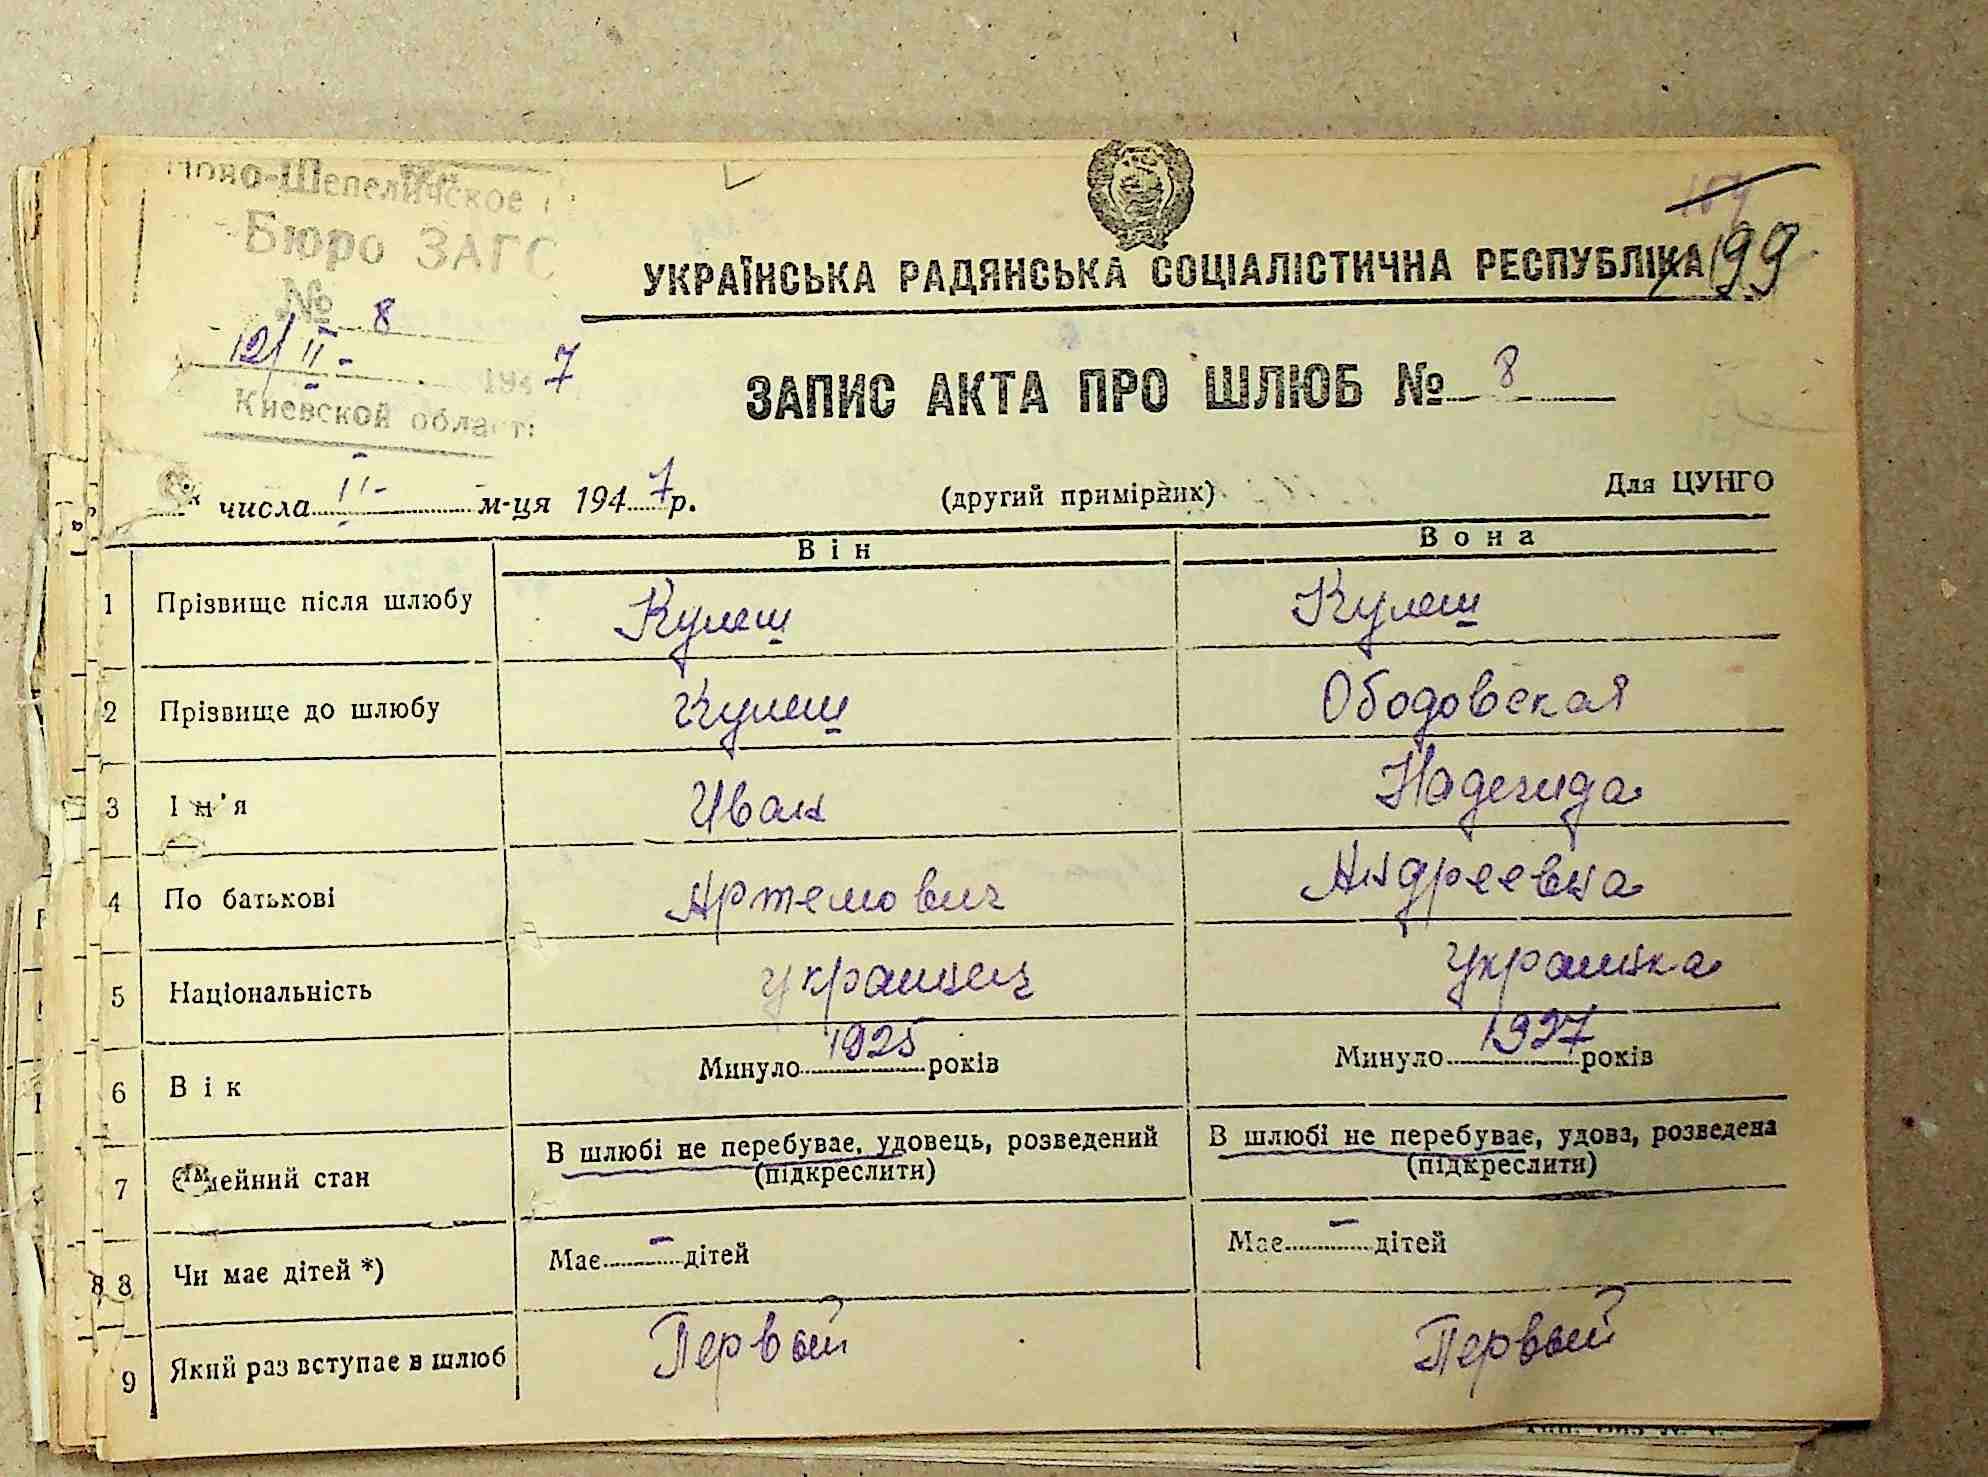 Ново-Шепеличское
Бюро ЗАГС
№ 8
12/ II - 1947
Киевской област
199
УКРАЇНСЬКА РАДЯНСЬКА СОЦІАЛІСТИЧНА РЕСПУБЛІКА
ЗАПИС АКТА ПРО ШЛЮБ № 8
числа II - м-ця 1947 р.
(другий примірник)
Для ЦУНГО
Він Вона
1 Прізвище після шлюбу Кулеш Кулеш
2 Прізвище до шлюбу Кулеш Ободовская
3 Ім'я Иван Надежда
4 По батькові Артемович Андреевна
5 Національність украинец украинка
6 Вік Минуло 1925 років Минуло 1927 років
7 Сімейний стан В шлюбі не перебуває, удовець, розведений (підкреслити) В шлюбі не перебуває, удова, розведена (підкреслити)
8 8 Чи має дітей *) Має - дітей Має - дітей
9 Який раз вступає в шлюб Первый Первый